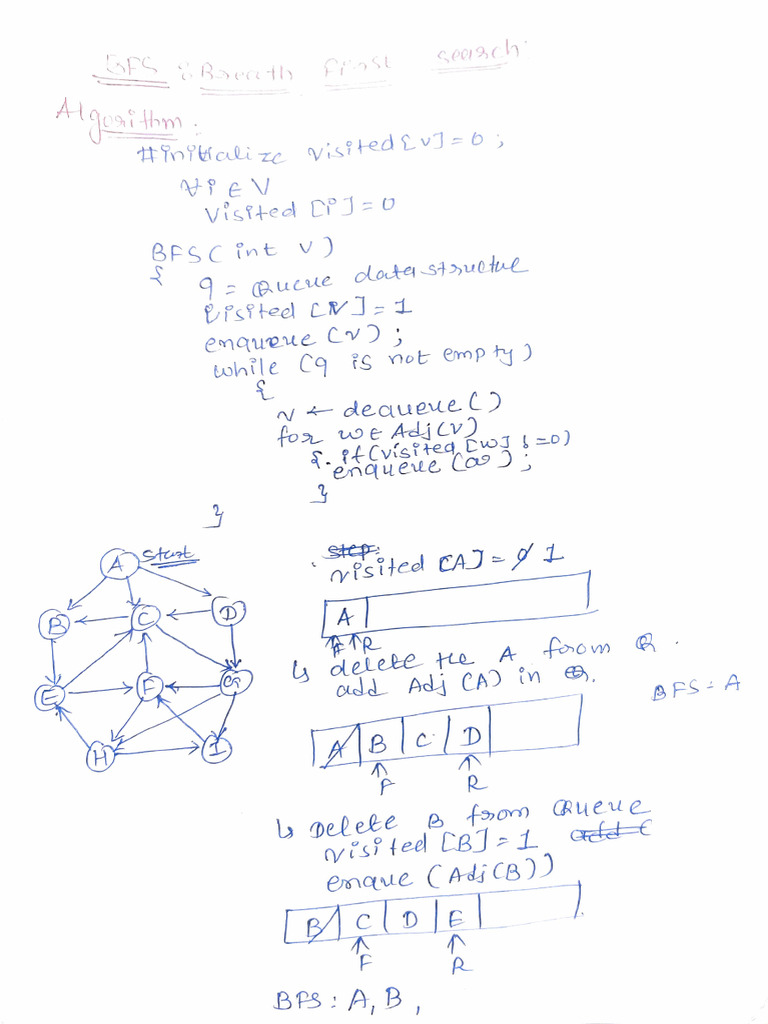 BFS : Breath First search
Algorithm :
#initialize visited [v] = 0 ;
∀ i ∈ V
visited [i] = 0
BFS ( int v )
{
q = Queue data structue
visited [v] = 1
enqueue (v) ;
while (q is not empty)
{
v ← dequeue ()
for w ∈ Adj (v)
{ . if (visited [w] ! = 0)
enqueue (w) ;
}
}
A Start
B C D
E F G
H I
step:
visited [A] = 0 1
A
F R
↳ delete the A from Q .
add Adj (A) in Q.
BFS : A
A B C D
F R
↳ Delete B from Queue
visited [B] = 1 add C
enque (Adj (B))
B C D E
F R
BFS : A, B ,